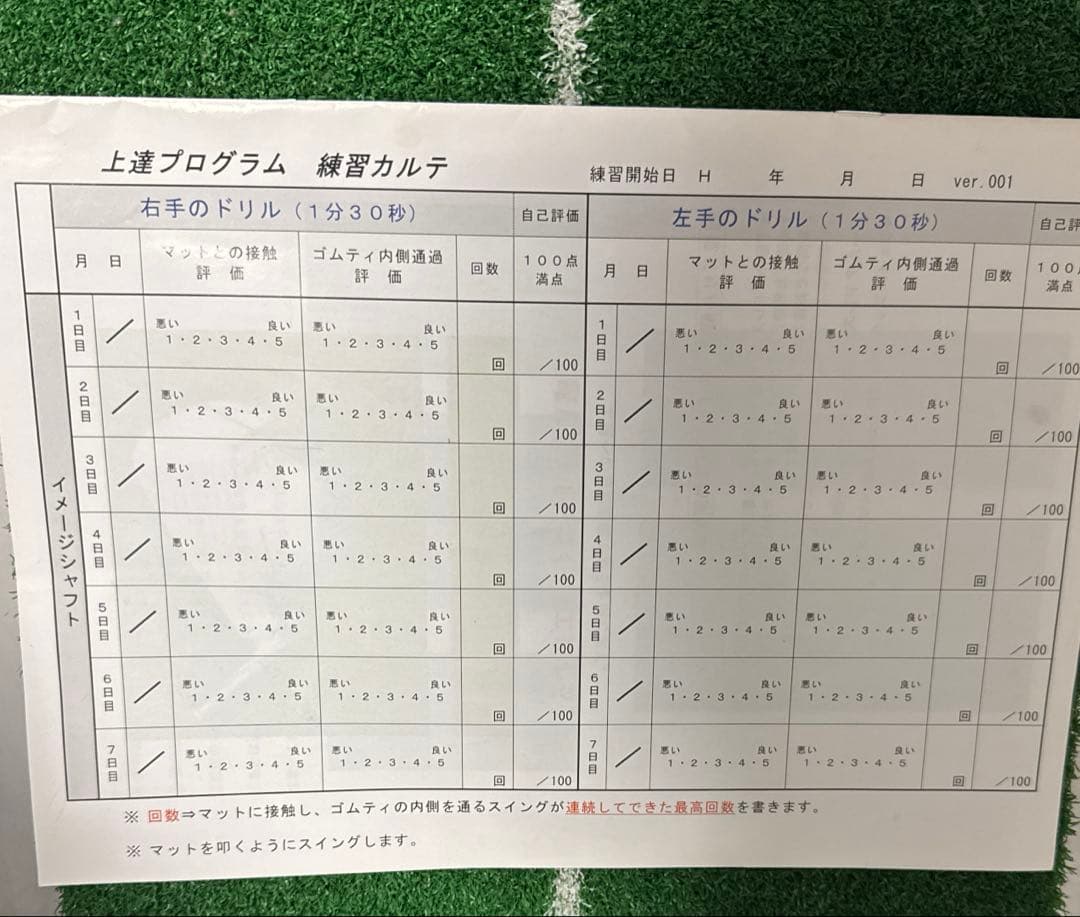 上達プログラム　練習カルテ
練習開始日　H　　年　　月　　日　ver.001
右手のドリル（１分３０秒）　自己評価　左手のドリル（１分３０秒）　自己評
月　日　マットとの接触 評　価　ゴムティ内側通過 評　価　回数　１００点 満点　月　日　マットとの接触 評　価　ゴムティ内側通過 評　価　回数　１００点 満点
イメージシャフト
１日目　／　悪い　良い １・２・３・４・５　悪い　良い １・２・３・４・５　回　／100　１日目　／　悪い　良い １・２・３・４・５　悪い　良い １・２・３・４・５　回　／100
２日目　／　悪い　良い １・２・３・４・５　悪い　良い １・２・３・４・５　回　／100　２日目　／　悪い　良い １・２・３・４・５　悪い　良い １・２・３・４・５　回　／100
３日目　／　悪い　良い １・２・３・４・５　悪い　良い １・２・３・４・５　回　／100　３日目　／　悪い　良い １・２・３・４・５　悪い　良い １・２・３・４・５　回　／100
４日目　／　悪い　良い １・２・３・４・５　悪い　良い １・２・３・４・５　回　／100　４日目　／　悪い　良い １・２・３・４・５　悪い　良い １・２・３・４・５　回　／100
５日目　／　悪い　良い １・２・３・４・５　悪い　良い １・２・３・４・５　回　／100　５日目　／　悪い　良い １・２・３・４・５　悪い　良い １・２・３・４・５　回　／100
６日目　／　悪い　良い １・２・３・４・５　悪い　良い １・２・３・４・５　回　／100　６日目　／　悪い　良い １・２・３・４・５　悪い　良い １・２・３・４・５　回　／100
７日目　／　悪い　良い １・２・３・４・５　悪い　良い １・２・３・４・５　回　／100　７日目　／　悪い　良い １・２・３・４・５　悪い　良い １・２・３・４・５　回　／100
※ 回数⇒マットに接触し、ゴムティの内側を通るスイングが連続してできた最高回数を書きます。
※ マットを叩くようにスイングします。